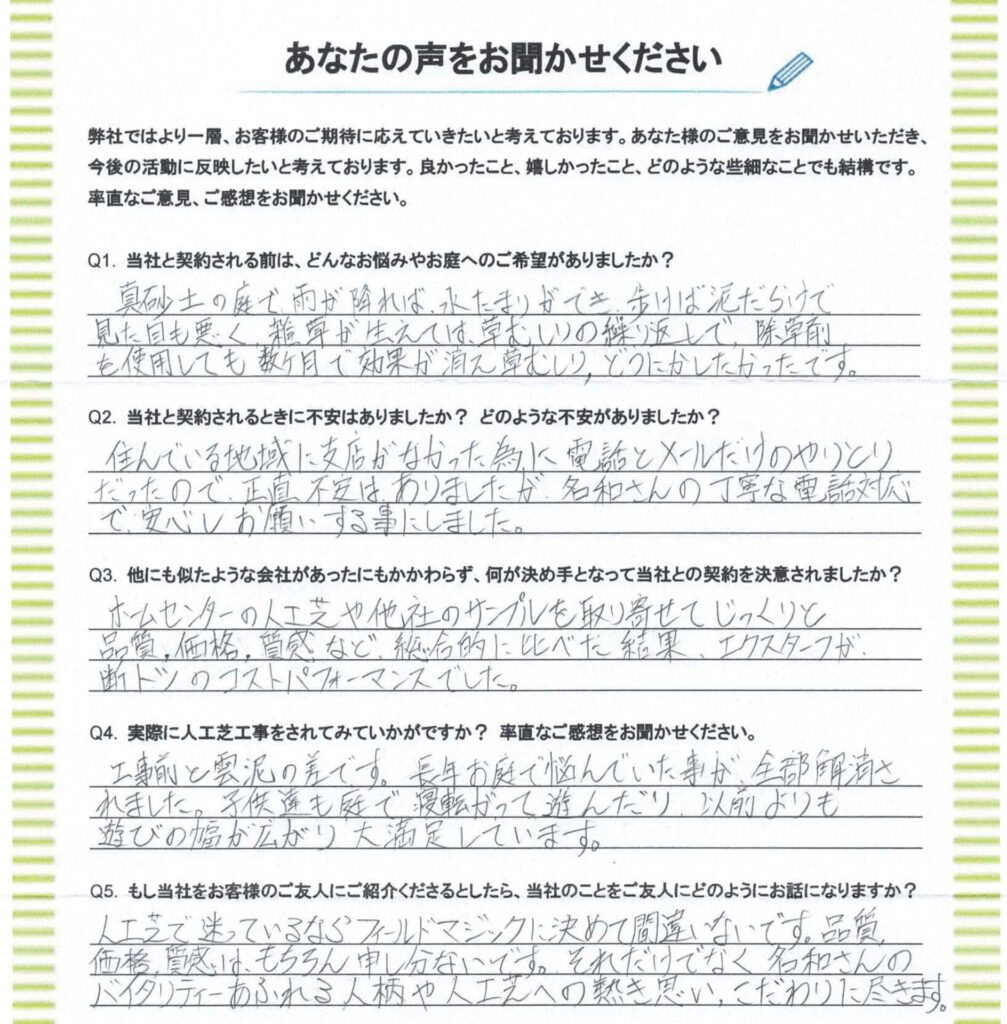 あなたの声をお聞かせください
弊社ではより一層、お客様のご期待に応えていきたいと考えております。あなた様のご意見をお聞かせいただき、
今後の活動に反映したいと考えております。良かったこと、嬉しかったこと、どのような些細なことでも結構です。
率直なご意見、ご感想をお聞かせください。
Q1. 当社と契約される前は、どんなお悩みやお庭へのご希望がありましたか？
真砂土の庭で、雨が降れば、水たまりができ、歩けば泥だらけで
見た目も悪く、雑草が生えては、草むしりの繰り返しで、除草剤
を使用しても数ヶ月で効果が消え草むしり、どうにかしたかったです。
Q2. 当社と契約されるときに不安はありましたか？ どのような不安がありましたか？
住んでいる地域に支店がなかった為に、電話とメールだけのやりとり
だったので、正直、不安は、ありましたが、名和さんの丁寧な電話対応
で、安心しお願いする事にしました。
Q3. 他にも似たような会社があったにもかかわらず、何が決め手となって当社との契約を決意されましたか？
ホームセンターの人工芝や他社のサンプルを取り寄せてじっくりと
品質，価格，質感，など、総合的に比べた結果、エクスターフが、
断トツのコストパフォーマンスでした。
Q4. 実際に人工芝工事をされてみていかがですか？ 率直なご感想をお聞かせください。
工事前と雲泥の差です。長年お庭で悩んでいた事が、全部解消さ
れました。子供達も庭で寝転がって遊んだり、以前よりも
遊びの幅が広がり大満足しています。
Q5. もし当社をお客様のご友人にご紹介くださるとしたら、当社のことをご友人にどのようにお話になりますか？
人工芝で迷っているならフィールドマジックに決めて間違いないです。品質，
価格，質感は、もちろん申し分ないです。それだけでなく名和さんの
バイタリティーあふれる人柄や人工芝への熱き思い，こだわりに尽きます。